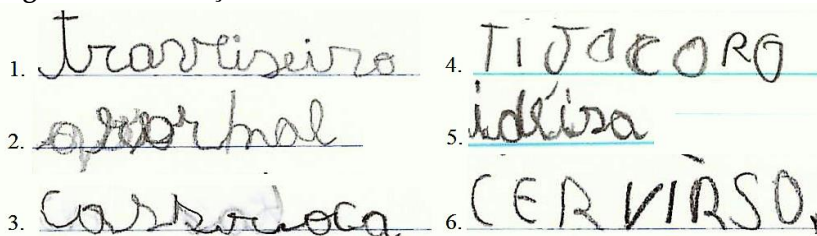 1. travriseiro
4. TIJOCORO
2. orormal
5. idéisa
3. carrosoca
6. CERVIRSO